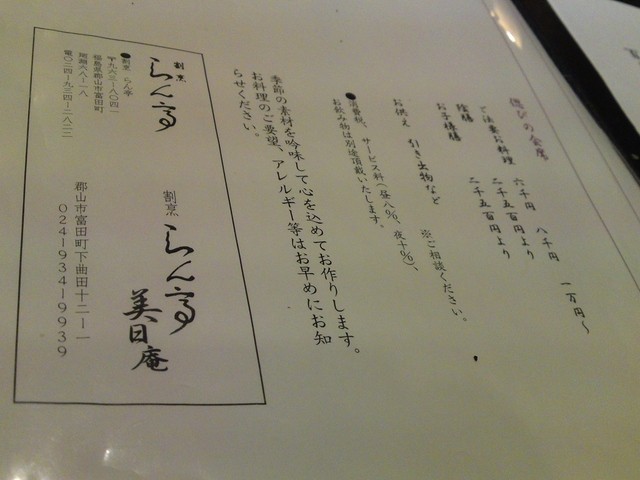 慶びの会席　六千円　八千円　一万円〜
ご法要お料理　二千五百円より
陰膳
お子様膳　二千五百円より
お供え　引き出物など　※ご相談ください。
●消費税、サービス料（昼八％、夜十％）、
お飲み物は別途頂戴いたします。
季節の素材を吟味して心を込めてお作りします。
お料理のご要望、アレルギー等はお早めにお知
らせください。
割烹
らん亭
●割烹　らん亭
〒九六三―八〇四一
福島県郡山市富田町
電〇二四―九三四―二八二二
割烹
らん亭
美日庵
郡山市富田町下曲田十二―一
024―934―9939